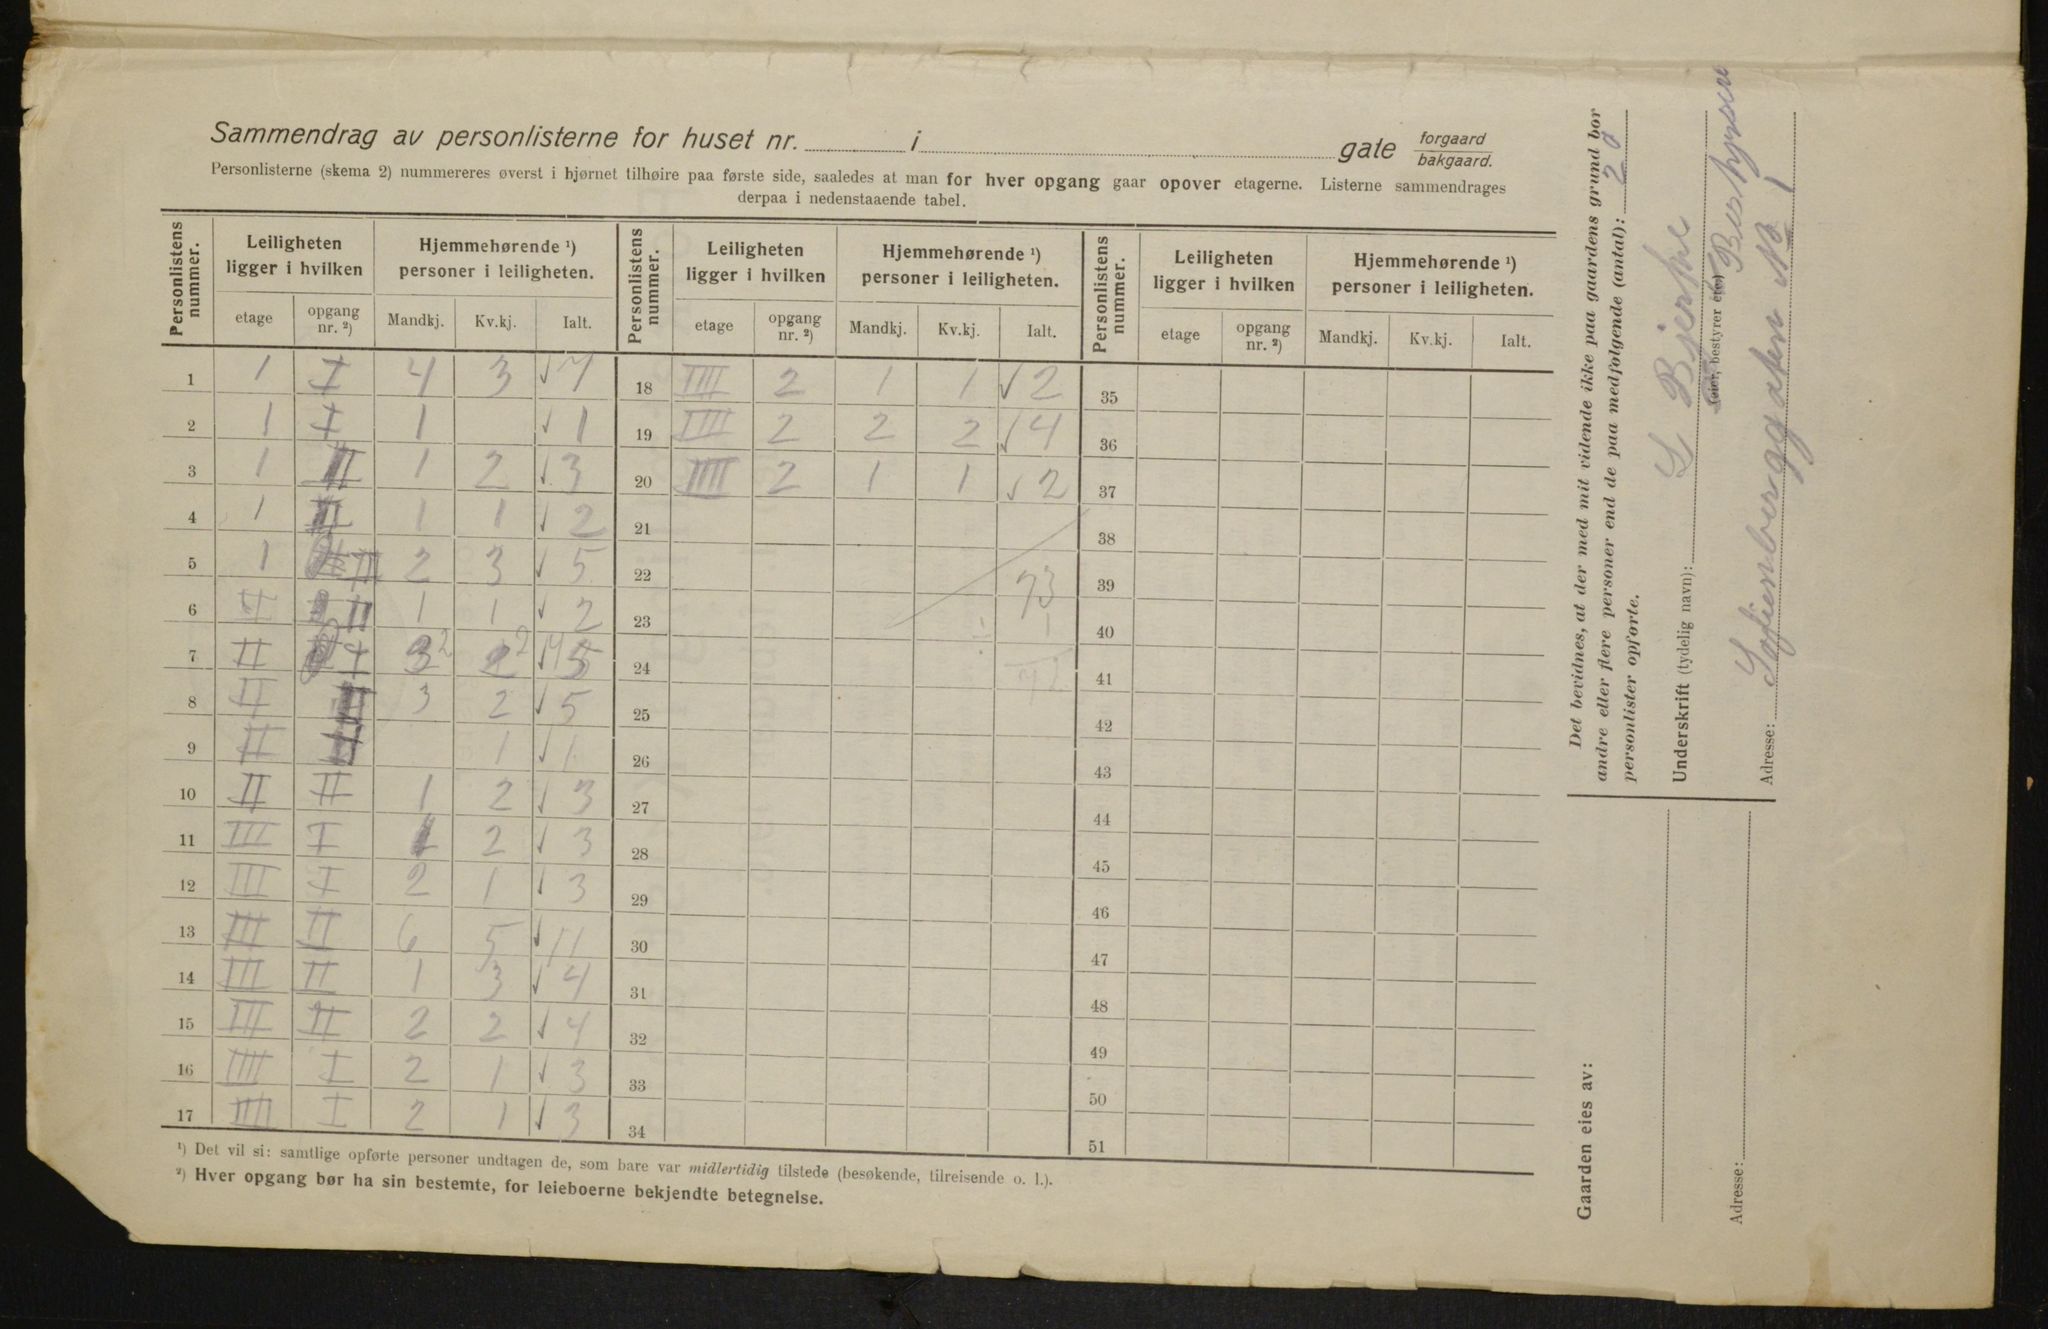 Sammendrag av personlisterne for huset nr. i gate forgaard bakgaard.
Personlisterne (skema 2) nummereres øverst i hjørnet tilhøire paa første side, saaledes at man for hver opgang gaar opover etagerne. Listerne sammendrages
derpaa i nedenstaaende tabel.
Personlistens nummer. Leiligheten ligger i hvilken Hjemmehørende ¹) personer i leiligheten. Personlistens nummer. Leiligheten ligger i hvilken Hjemmehørende ¹) personer i leiligheten. Personlistens nummer. Leiligheten ligger i hvilken Hjemmehørende ¹) personer i leiligheten.
etage opgang nr. ²) Mandkj. Kv.kj. Ialt. etage opgang nr. ²) Mandkj. Kv.kj. Ialt. etage opgang nr. ²) Mandkj. Kv.kj. Ialt.
1 1 I 4 3 7 18 IIII 2 1 1 2 35
2 1 I 1 1 19 IIII 2 2 2 4 36
3 1 II 1 2 3 20 IIII 2 1 1 2 37
4 1 II 1 1 2 21 38
5 1 II 2 3 5 22 73 39
6 II II 1 1 2 23 ÷ 1 40
7 II I 3 2 2 2 4 5 24 72 41
8 II 3 2 5 25 42
9 II 1 1 26 43
10 II II 1 2 3 27 44
11 III I 1 2 3 28 45
12 III I 2 1 3 29 46
13 III II 6 5 11 30 47
14 III II 1 3 4 31 48
15 III II 2 2 4 32 49
16 IIII I 2 1 3 33 50
17 IIII I 2 1 3 34 51
¹) Det vil si: samtlige opførte personer undtagen de, som bare var midlertidig tilstede (besøkende, tilreisende o. l.).
²) Hver opgang bør ha sin bestemte, for leieboerne bekjendte betegnelse.
Det bevidnes, at der med mit vidende ikke paa gaardens grund bor
andre eller flere personer end de paa medfølgende (antal): 20
personlister opførte.
Underskrift (tydelig navn): L Bjerke
(eier, bestyrer etc.)
Adresse: Sofienberggaten No 1
Gaarden eies av:
Adresse: